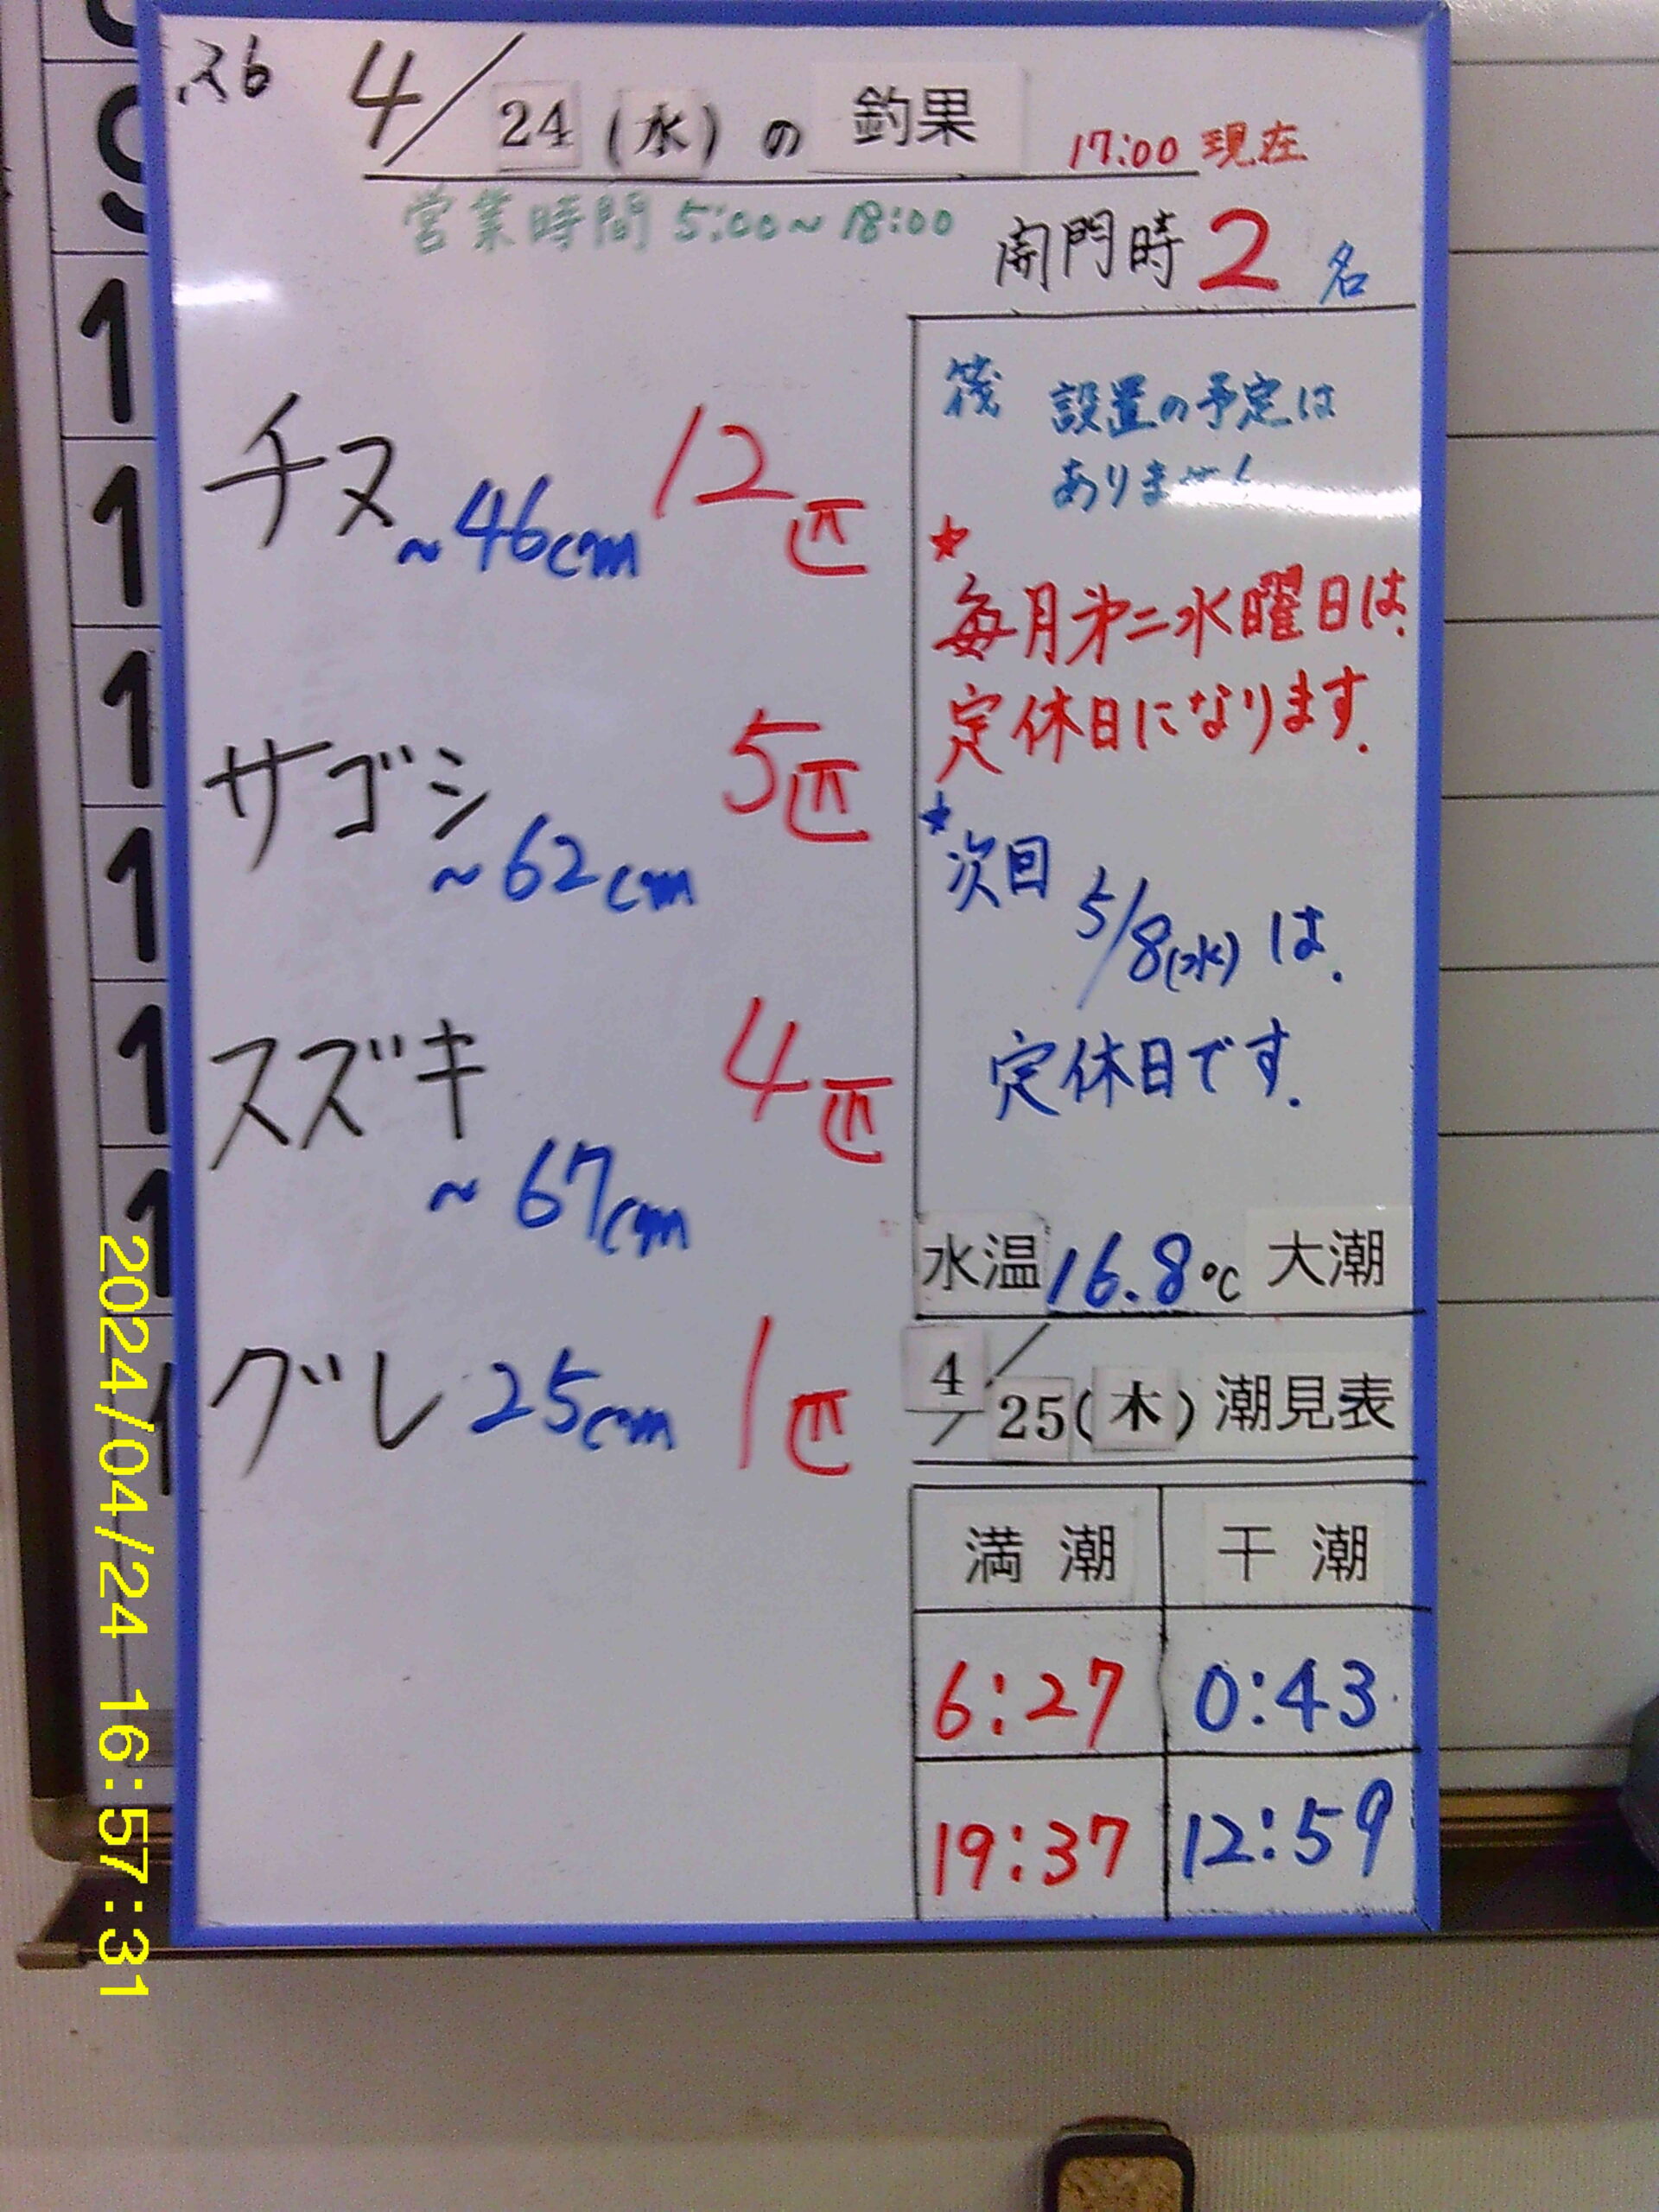 R6 4/24(水)の釣果 17:00 現在
営業時間 5:00~18:00
開門時 2 名
チヌ ~46cm 12匹
サゴシ ~62cm 5匹
スズキ ~67cm 4匹
グレ 25cm 1匹
筏 設置の予定は
ありません
★
毎月第二水曜日は、
定休日になります.
★次回
5/8(水)は、
定休日です.
水温 16.8℃ 大潮
4/25(木)潮見表
満潮 干潮
6:27 0:43
19:37 12:59
2024/04/24 16:57:31